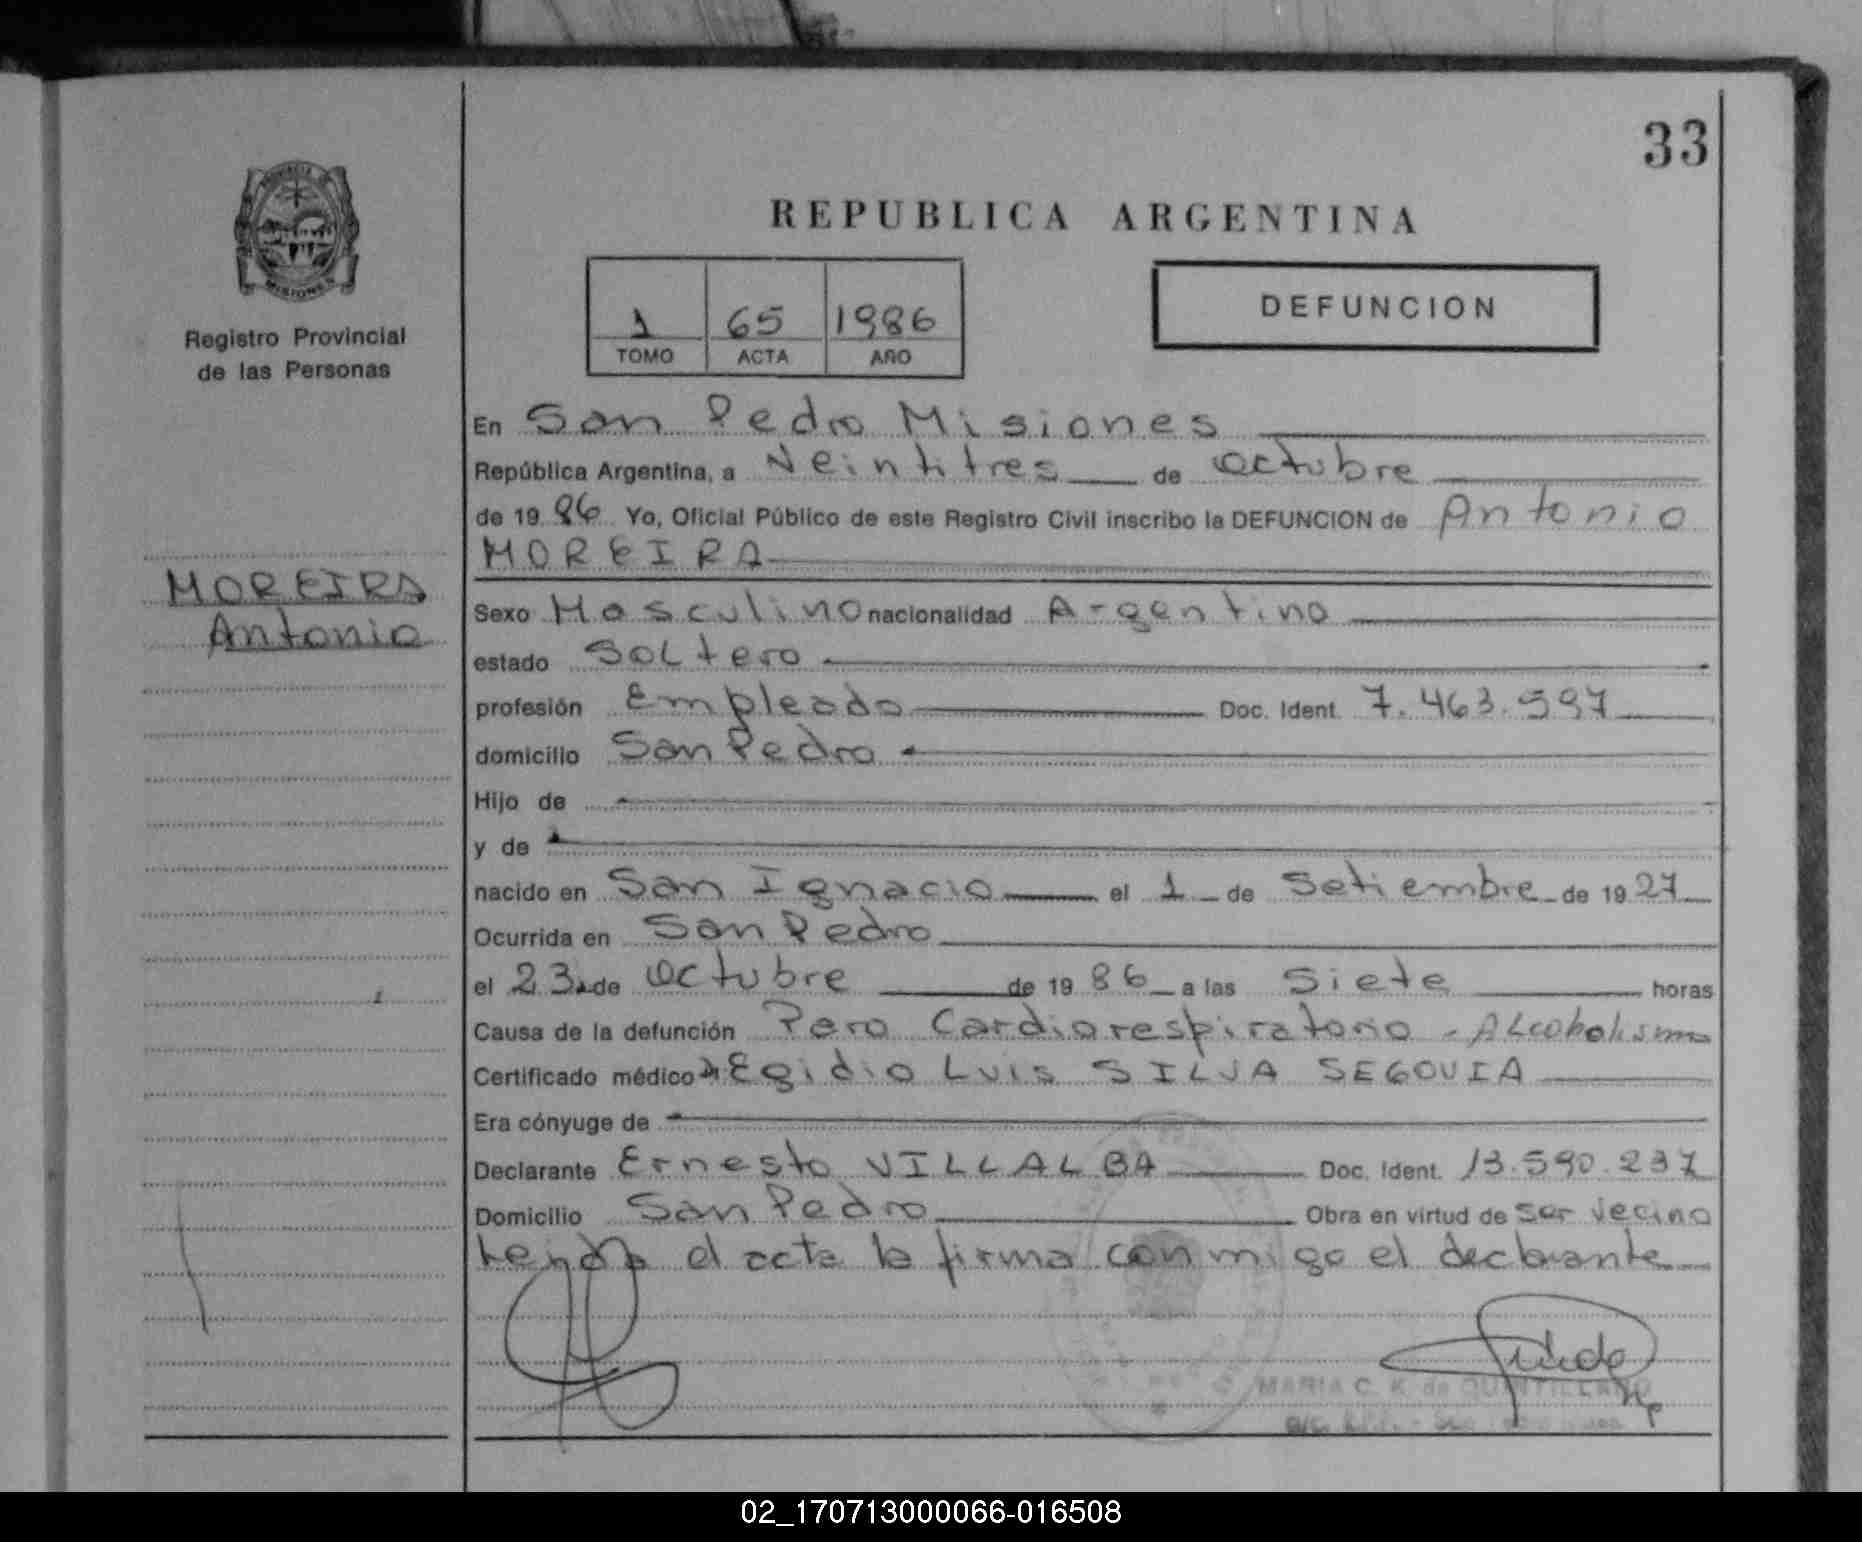 33
PROVINCIA DE
MISIONES
Registro Provincial
de las Personas
REPUBLICA ARGENTINA
1 65 1986
TOMO ACTA AÑO
DEFUNCION
En San Pedro Misiones
República Argentina, a Veintitres de octubre
de 1986 Yo, Oficial Público de este Registro Civil inscribo la DEFUNCION de Antonio
MOREIRA
MOREIRA
Antonio
Sexo Masculino nacionalidad Argentino
estado Soltero
profesión Empleado Doc. Ident. 7.463.597
domicilio San Pedro
Hijo de
y de
nacido en San Ignacio el 1 de Setiembre de 1927
Ocurrida en San Pedro
el 23 de octubre de 1986 a las Siete horas
Causa de la defunción Paro Cardiorespiratorio - Alcoholismo
Certificado médico Egidio Luis SILVA SEGOVIA
Era cónyuge de
Declarante Ernesto VILLALBA Doc. Ident. 13.590.237
Domicilio San Pedro Obra en virtud de ser vecino
Leída el acta la firma conmigo el declarante
MARIA C. K. de QUINTILLANO
02_170713000066-016508